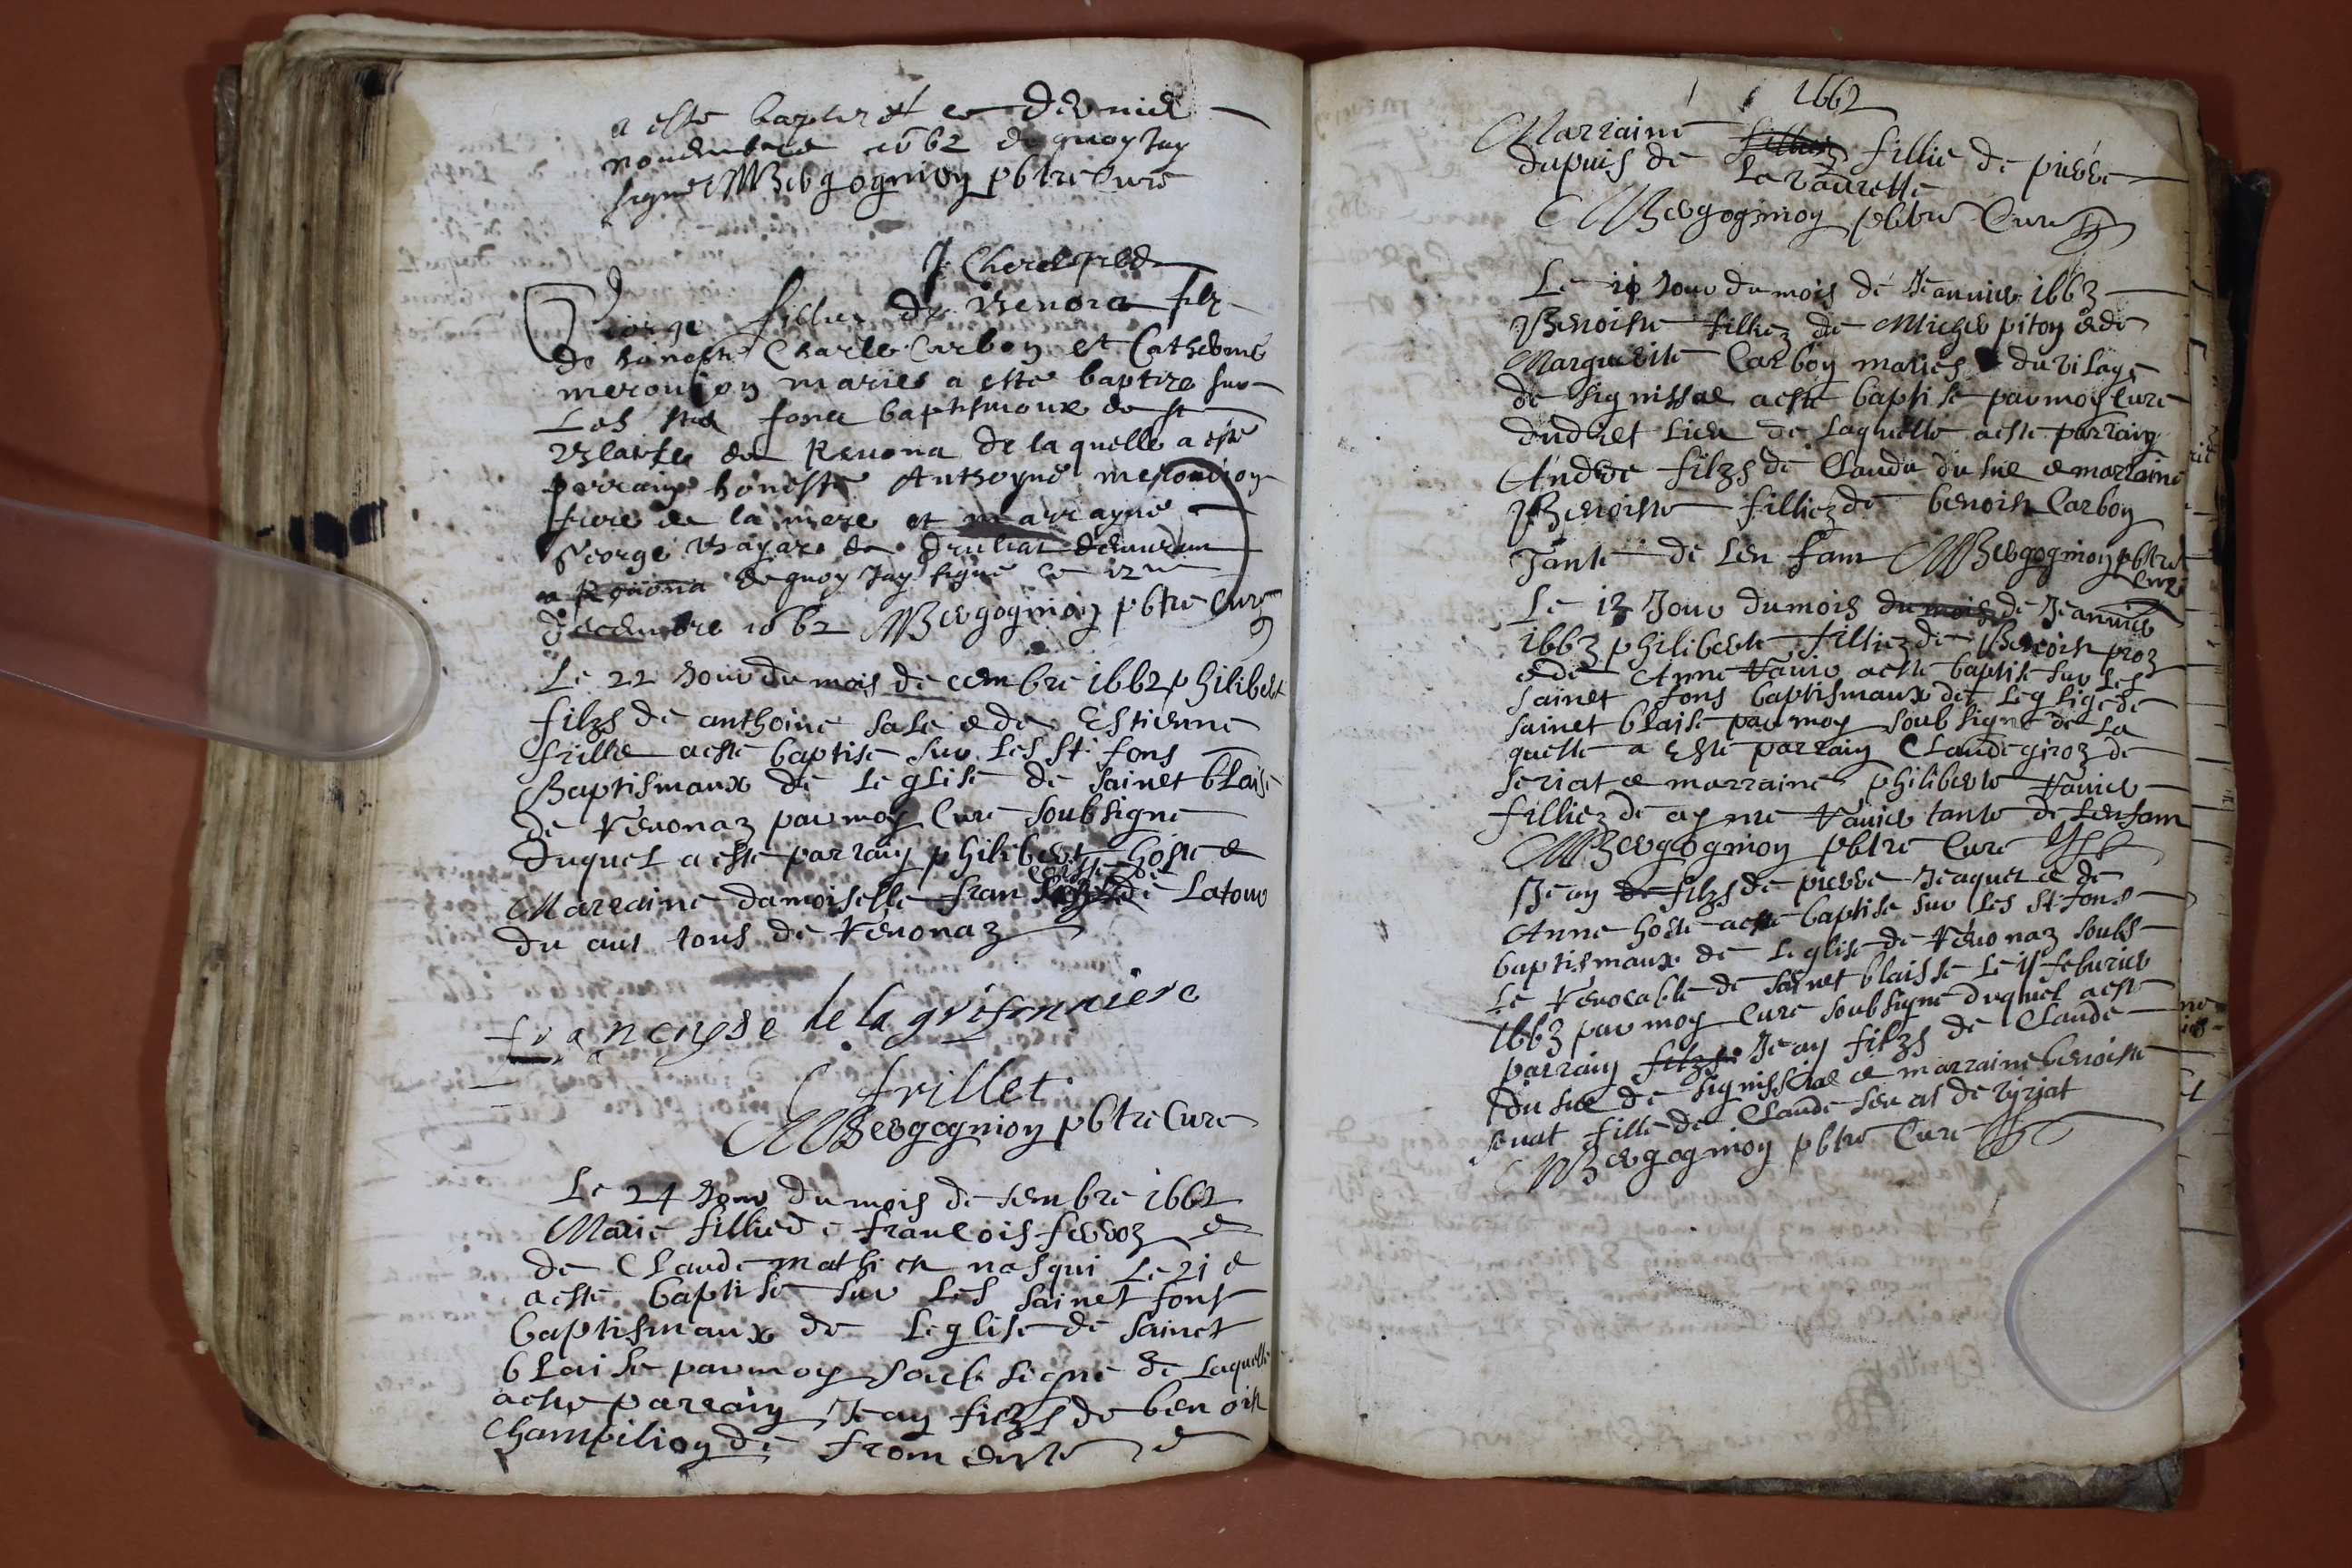 a esté baptizé ce dernier
novembre 1662 de quoy Jay
signé MBergognion pbtre Curé
George fillie de
de honeste Charle Carbon et Catherine
merouion mariés a esté baptize sur
Les stes fons baptismaux de st
Blaise de Reuona de la quelle a esté
parrain honeste Anthoyne merouion
frere de la mere et marrayne
George Bayard de Druliat demurant
a Reuona de quoy Jay signé ce 12me
decembre 1662 MBergognion pbtre Curé
Le 22 Jour du mois decembre 1662 philibert
filzs de anthoine sale e de Estienne
frille a esté baptisé sur Les st fons
Baptismaux de Leglise de sainct blaise
de Reuonaz par moy Curé soubsigné
duquel a esté parrain philibert hoste e
Marraine damoiselle fran coysse de Latour
du tous de Reuonaz
francoyse de la grifonniere
frillet
MBergognion pbtre Curé
Le 24 Jour du mois desembre 1662
Marie fillie de francois ferroz e
de Claude mathieu nasqui Le 21 e
a esté baptisé sur Les sainct fons
baptismaux de Leglise de sainct
blaise par moy soubsigné de Laquelle
a esté parrain Jean filzs de benoist
Champilion de fromente e
1662
Marraine fillie fillie de pierre
dupuis de La vaurette
MBergognion pbtre Curé
Le 10 Jour du mois de Jeanvier 1663
Benoiste filliez de Micher piton e de
Marguerite Carbon mariés du vilage
de signissial a esté baptisé par moy Curé
dudict Lieu de Laquelle a esté parrain
Andre filzs de Claude du sue e marraine
Benoiste filliez de benoist Carbon
Tante de Len fam MBergognion pbtre
Curé
Le 13 Jour du mois du mois de Jeanvier
1663 philiberte filliez de Benoist proz
e de Anne Vanier a esté baptisé sur Les
sainct fons baptismaux de Leglige de
sainct blaise par moy soub signé de La
quelle a Esté parrain Claude giroz de
seriat e marraine philiberte Vanier
filliez de ayme Vanier tante de Lenfam
MBergognion pbtre Curé
Jean de filzs de pierre Jeaquet e de
Anne hoste a esté baptisé sur Les st fons
baptismaux de Leglise de Reuonaz soubs
Le Venocable de sainct blaisse Le 11 feburier
1663 par moy Curé soubsigné duquel a esté
parrain filzs Jean filzs de Claude
du sue de signissial e marraine benoiste
senat fille de Claude senat de ryriat
MBergognion pbtre Curé